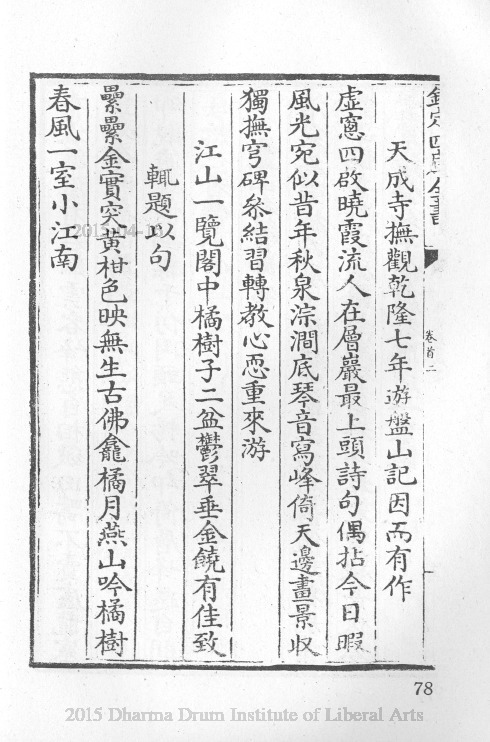 欽定四庫全書
卷首二
天成寺撫觀乾隆七年遊盤山記因而有作
虛窻四啟曉霞流人在層巖最上頭詩句偶拈今日暇
風光宛似昔年秋泉淙澗底琴音寫峰倚天邊畫景収
獨撫穹碑叅結習轉教心恧重來游
江山一覽閣中橘樹子二盆鬱翠垂金饒有佳致
輒題以句
纍纍金實突黃柑色映無生古佛龕橘月燕山吟橘樹
春風一室小江南
78
2015 Dharma Drum Institute of Liberal Arts